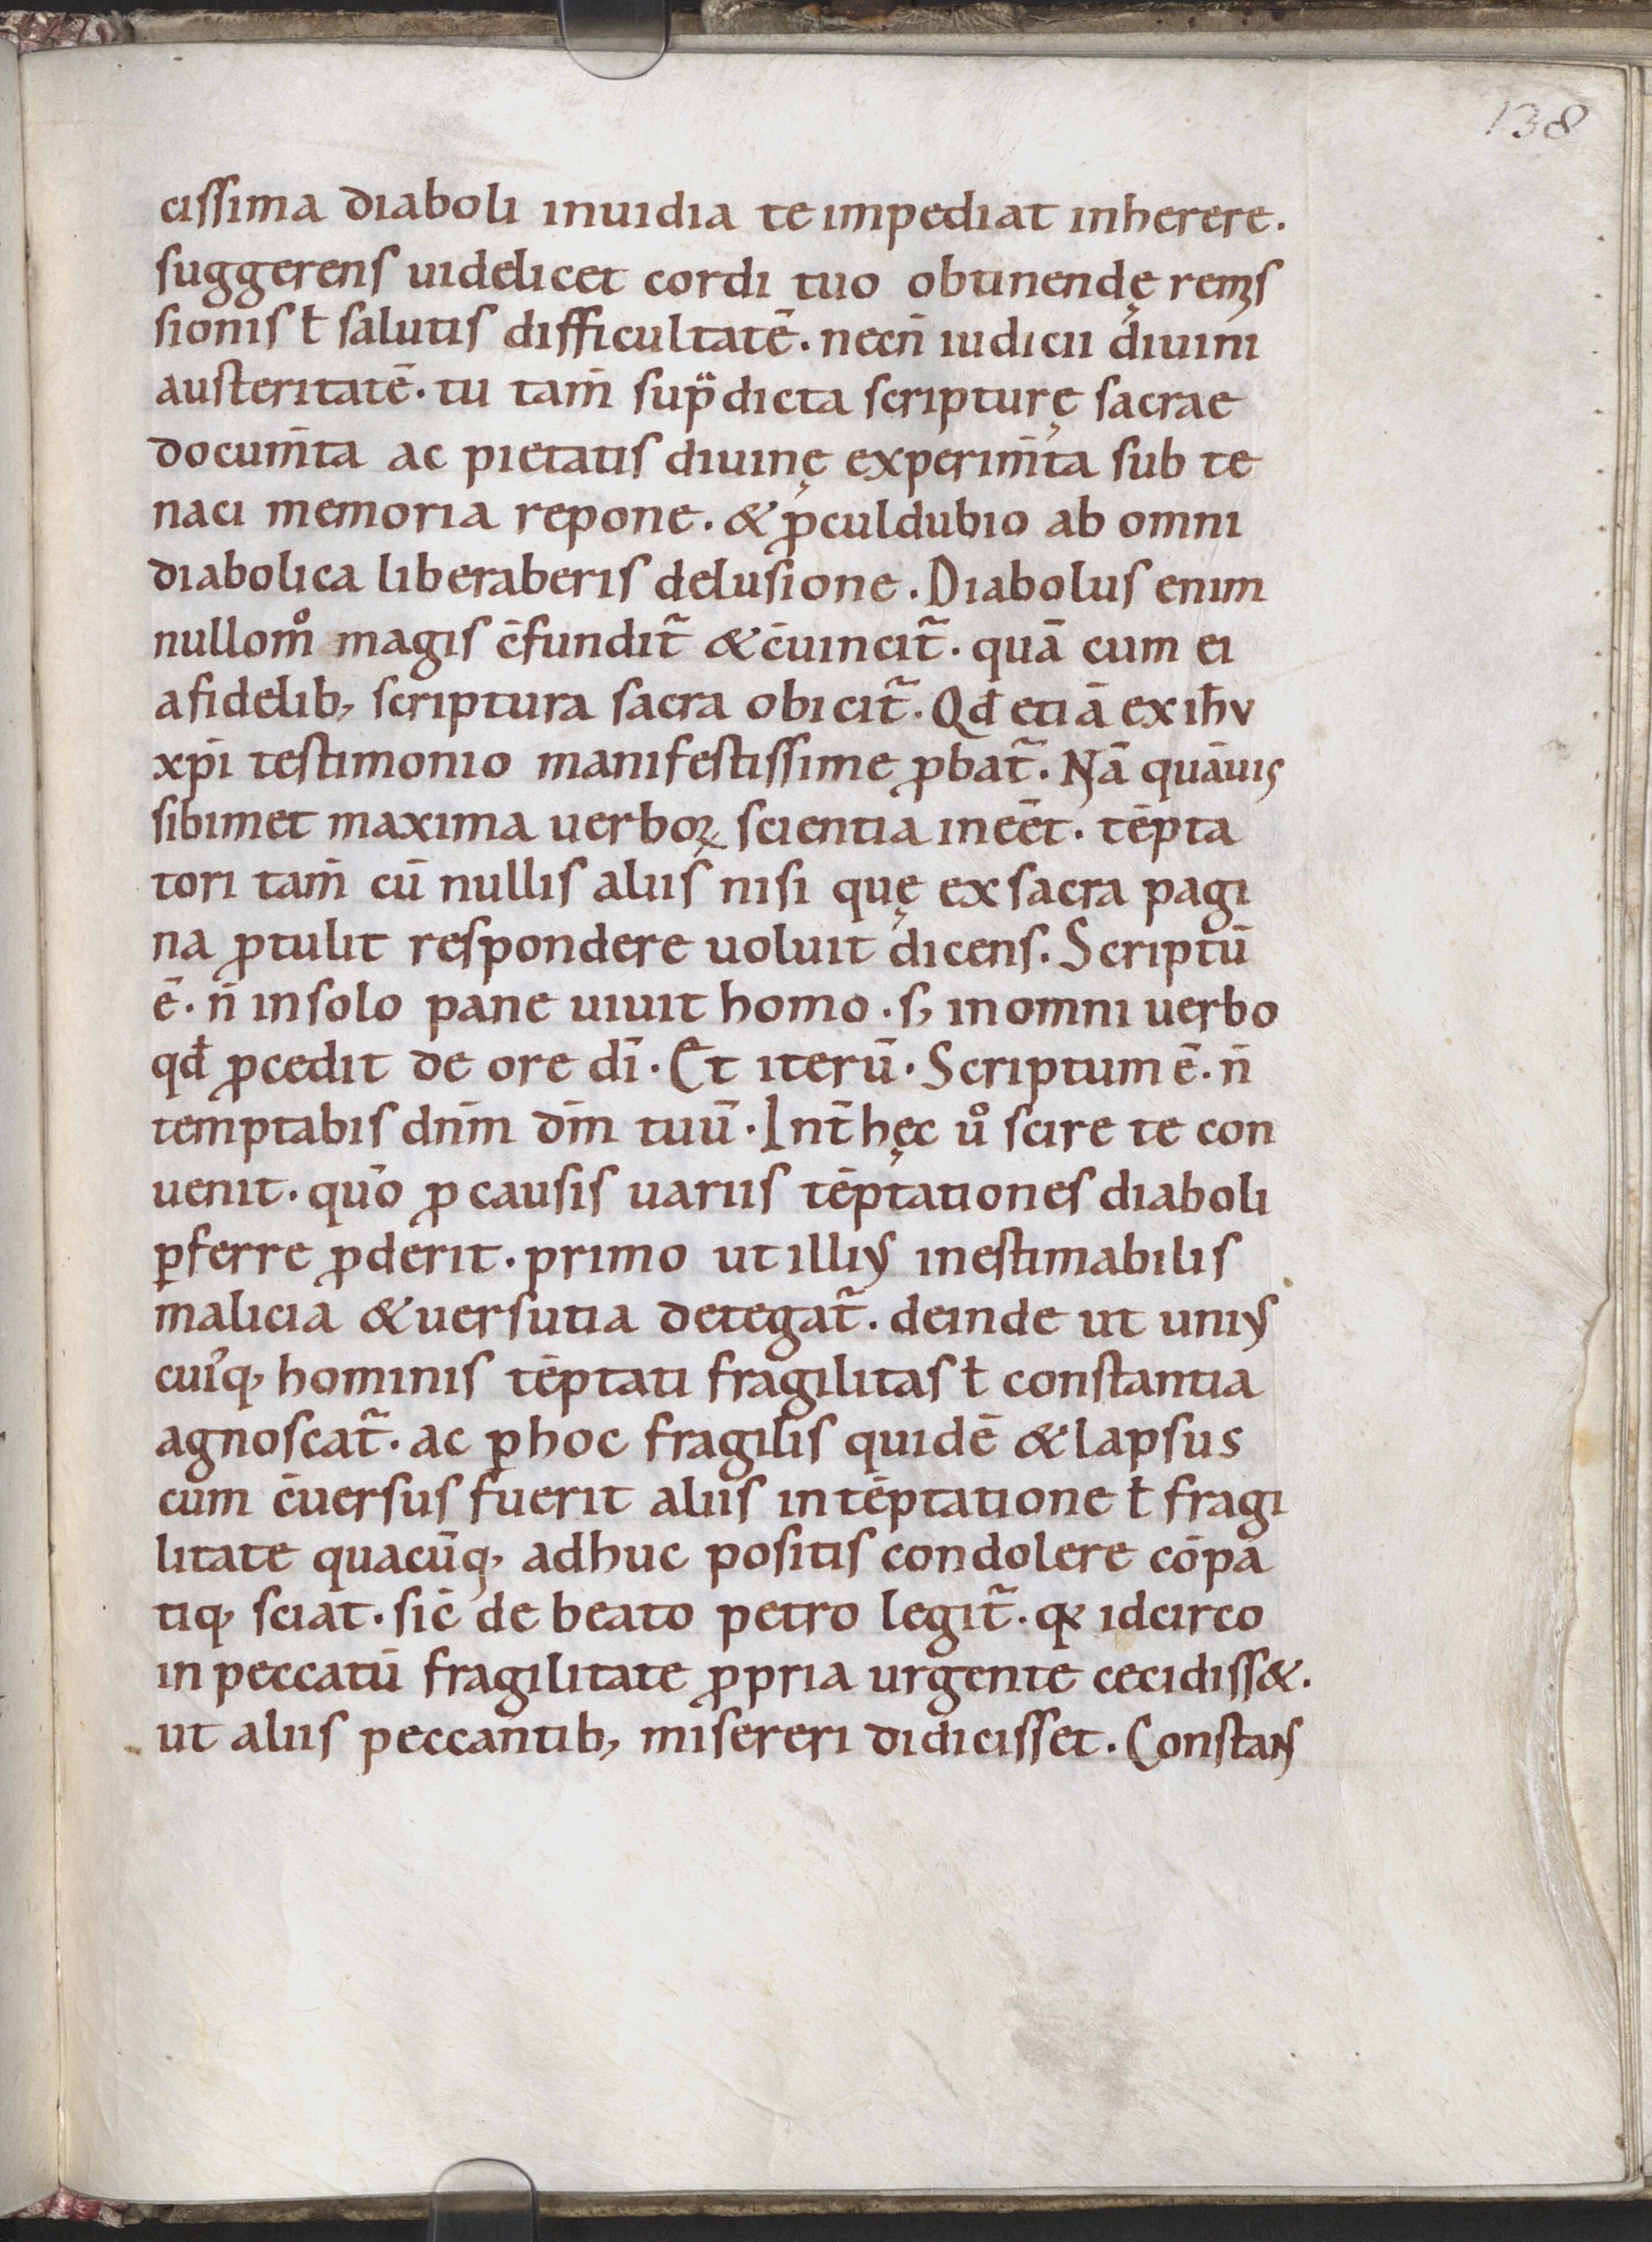 138
cissima diaboli inuidia te impediat inherere.
suggerens uidelicet cordi tuo obtinendę remis
sionis ł salutis difficultatē. necn̄ iudicii diuini
austeritatē. tu tam̄ sup̈dicta scripturę sacrae
docum̄ta ac pietatis diuinę experim̄ta sub te
naci memoria repone. & ꝓculdubio ab omni
diabolica liberaberis delusione. Diabolus enim
nullom̊ magis c̄fundit᷑ & c̄uincit᷑. quā cum ei
a fidelib; scriptura sacra obicit᷑. Qđ etiā ex ih̄v
xp̄i testimonio manifestissime ꝓbat᷑. Nā quāuis
sibimet maxima uerboꝝ scientia ineēt. tēpta
tori tam̄ cū nullis aliis nisi quę ex sacra pagi
na ꝓtulit respondere uoluit dicens. Scriptū
ē. n̄ in solo pane uiuit homo. s; in omni uerbo
qđ ꝓcedit de ore dī. Et iterū. Scriptum ē. n̄
temptabis dnm̄ dm̄ tuū. Int̄ hęc ů scire te con
uenit. quō ꝓ causis uariis tēptationes diaboli
ꝑferre ꝓderit. primo ut illiꝰ inestimabilis
malicia & uersutia detegat᷑. deinde ut uniꝰ
cuiq; hominis tēptati fragilitas ł constantia
agnoscat᷑. ac ꝑ hoc fragilis quidē & lapsus
cum c̄uersus fuerit aliis in tēptatione ł fragi
litate quacūq; adhuc positis condolere cōpa
tiq; sciat. sic̄ de beato petro legit᷑. qꝫ idcirco
in peccatū fragilitate ꝓpria urgente cecidiss&.
ut aliis peccantib; misereri didicisset. Constans